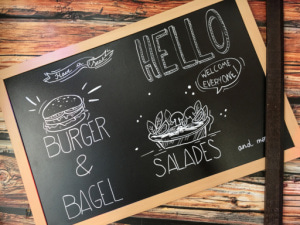 HELLO
WELCOME
EVERYONE
BURGER
&
BAGEL
SALADES
and mo